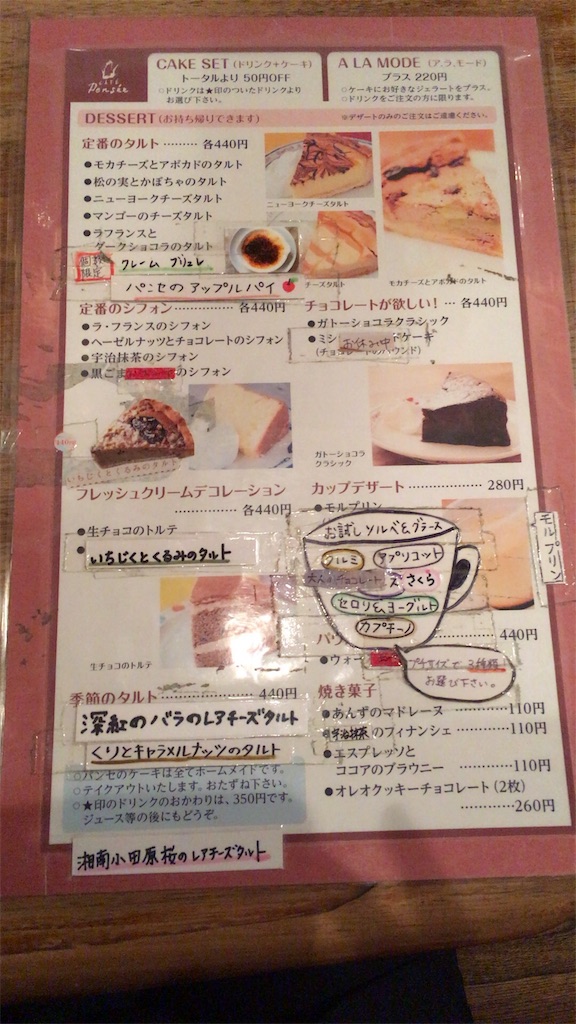 CAFE
Pensée
CAKE SET (ドリンク+ケーキ)
トータルより 50円OFF
○ドリンクは★印のついたドリンクより
お選び下さい。
A LA MODE (ア.ラ.モード)
プラス 220円
○ケーキにお好きなジェラートをプラス。
○ドリンクをご注文の方に限ります。
DESSERT (お持ち帰りできます)
※デザートのみのご注文はご遠慮ください。
定番のタルト ……… 各440円
●モカチーズとアボカドのタルト
●松の実とかぼちゃのタルト
●ニューヨークチーズタルト
●マンゴーのチーズタルト
●ラフランスと
ダークショコラのタルト
ニューヨークチーズタルト
チーズタルト
モカチーズとアボカドのタルト
個数限定
クレーム ブリュレ
パンセのアップルパイ
定番のシフォン ………… 各440円
●ラ・フランスのシフォン
●ヘーゼルナッツとチョコレートのシフォン
●宇治抹茶のシフォン
●黒ごま のシフォン
チョコレートが欲しい! … 各440円
●ガトーショコラクラシック
●ミシ お休み中 ドケーキ
(チョコレートのパウンド)
440円
いちじくとくるみのタルト
ガトーショコラ
クラシック
フレッシュクリームデコレーション
………… 各440円
●生チョコのトルテ
●いちじくとくるみのタルト
生チョコのトルテ
カップデザート ………… 280円
●モルプリン
モルプリン
お試しソルベ&グラース
クルミ
アプリコット
大人のチョコレート
さくら
セロリ&ヨーグルト
カプチーノ
プチサイズで 3種類!
お選び下さい。
440円
●ウォー
季節のタルト ………… 440円
深紅のバラのレアチーズタルト
くりとキャラメルナッツのタルト
○パンセのケーキは全てホームメイドです。
○テイクアウトいたします。おたずね下さい。
○★印のドリンクのおかわりは、350円です。
ジュース等の後にもどうぞ。
焼き菓子
●あんずのマドレーヌ ……… 110円
宇治抹茶のフィナンシェ …… 110円
●エスプレッソと
ココアのブラウニー ………… 110円
●オレオクッキーチョコレート (2枚)
………… 260円
湘南小田原桜のレアチーズタルト